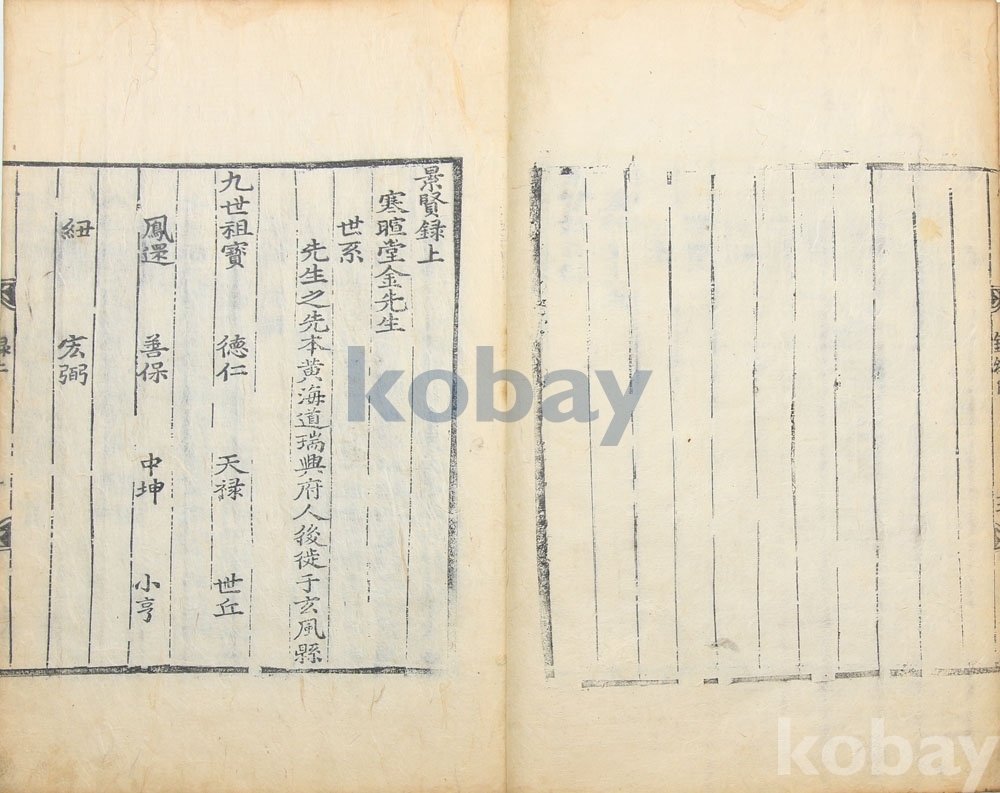 景賢録上
寒暄堂金先生
世系
先生之先本黄海道瑞興府人後徙于玄風縣
九世祖寶 德仁 天禄 世丘
鳳還 善保 中坤 小亨
紐 宏弼
kobay
kobay